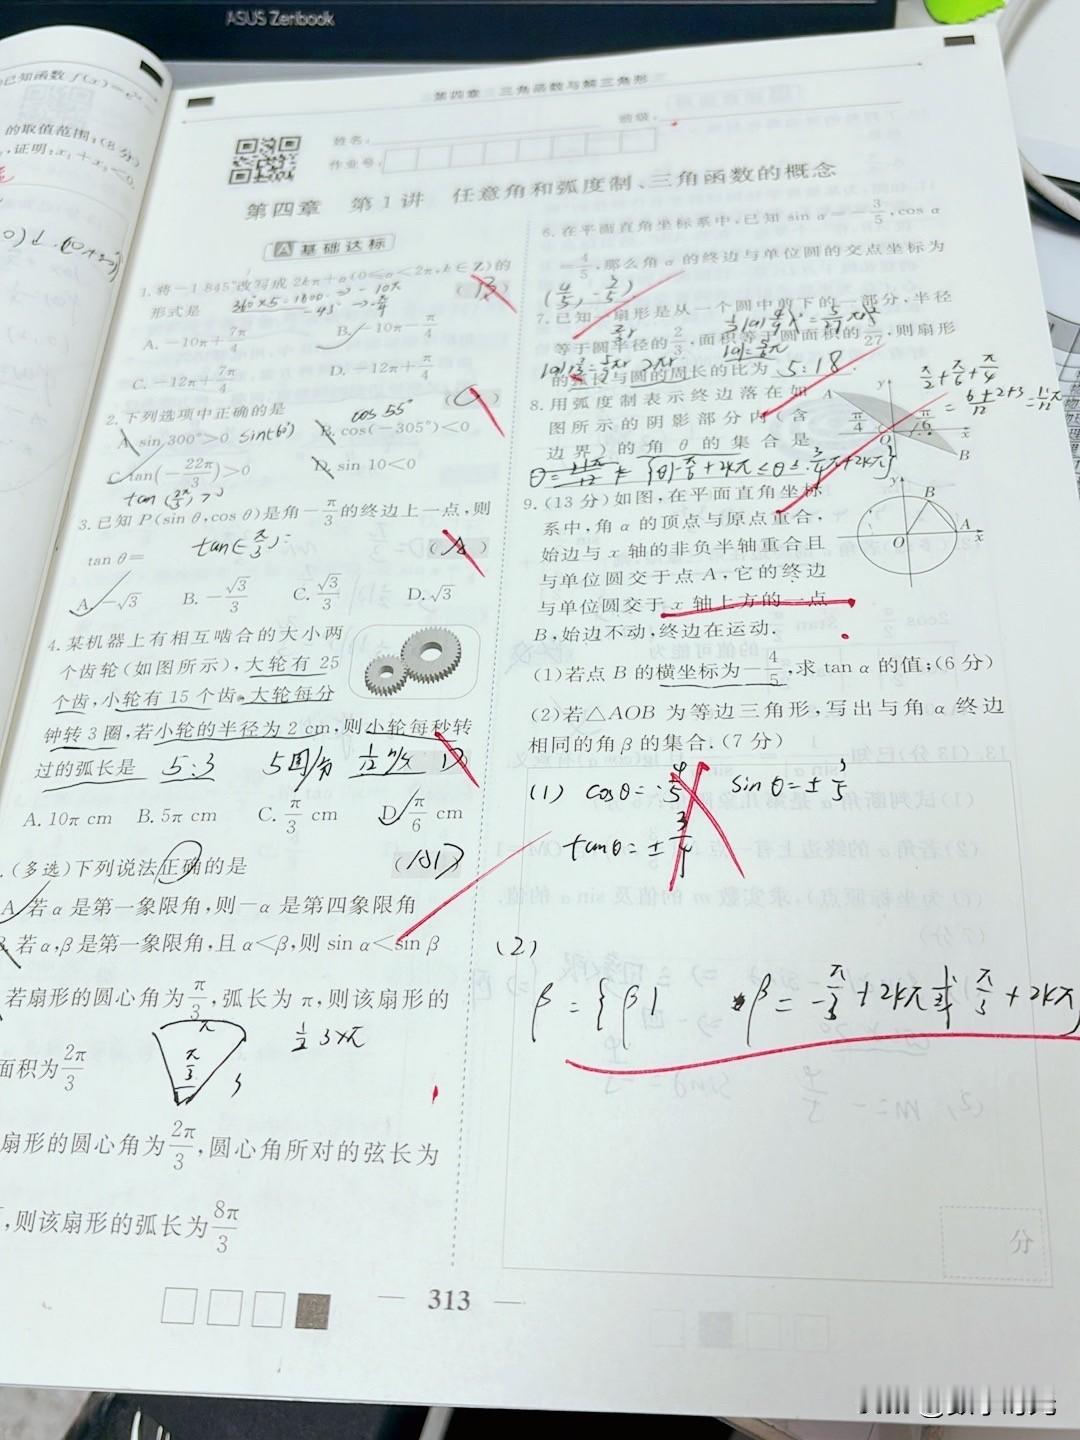 ASUS Zenbook
已知函数 f(x)=e
的取值范围;(8分)
,证明:x₁+x₂<0.
第四章 三角函数与解三角形
姓名:
班级:
作业号:
第四章 第1讲 任意角和弧度制、三角函数的概念
A 基础达标
1. 将-1 845°改写成 2kπ+α(0≤α<2π,k∈Z)的
形式是
360°×5=1800 ⇒ -10π
-45° → -π/4
A. -10π+7π/4 B. -10π-π/4
C. -12π+7π/4 D. -12π+π/4
2. 下列选项中正确的是 (C)
cos 55°
A. sin 300°>0 B. cos(-305°)<0
C. tan(-22π/3)>0 D. sin 10<0
3. 已知 P(sin θ,cos θ)是角-π/3的终边上一点,则
tan θ= (A)
tan(-π/3)=
A. -√3 B. -√3/3 C. √3/3 D. √3
4. 某机器上有相互啮合的大小两
个齿轮(如图所示),大轮有 25
个齿,小轮有 15 个齿,大轮每分
钟转 3 圈,若小轮的半径为 2 cm,则小轮每秒转
过的弧长是 (D)
5:3 5圈/分
A. 10π cm B. 5π cm C. π/3 cm D. π/6 cm
.(多选)下列说法正确的是
A. 若 α 是第一象限角,则-α 是第四象限角
B. 若 α,β 是第一象限角,且 α<β,则 sin α<sin β
若扇形的圆心角为π/3,弧长为 π,则该扇形的
面积为2π/3
π
π/3
3
1/2 3×π
扇形的圆心角为2π/3,圆心角所对的弦长为
,则该扇形的弧长为8π/3
6. 在平面直角坐标系中,已知 sin α=-3/5,cos α
=4/5,那么角 α 的终边与单位圆的交点坐标为
(4/5,-3/5)
7. 已知一扇形是从一个圆中剪下的一部分,半径
等于圆半径的2/3,面积等于圆面积的5/27,则扇形
的弧长与圆的周长的比为 5:18.
8. 用弧度制表示终边落在如
图所示的阴影部分内(含
边界)的角 θ 的集合是
{θ|-π/6+2kπ≤θ≤3/4π+2kπ}
π/2+π/6+π/4
=6+2+3/12=11/12π
A
y
π/4
π/6
O
x
B
9. (13 分)如图,在平面直角坐标
系中,角 α 的顶点与原点重合,
始边与 x 轴的非负半轴重合且
与单位圆交于点 A,它的终边
与单位圆交于 x 轴上方的一点
B,始边不动,终边在运动.
y
B
O
A
x
(1)若点 B 的横坐标为-4/5,求 tan α 的值;(6 分)
(2)若△AOB 为等边三角形,写出与角 α 终边
相同的角 β 的集合. (7 分)
(1) cosθ=-4/5 sinθ=±3/5
tanθ=±3/4
(2)
β={β| β=-π/3+2kπ或π/3+2kπ
分
313